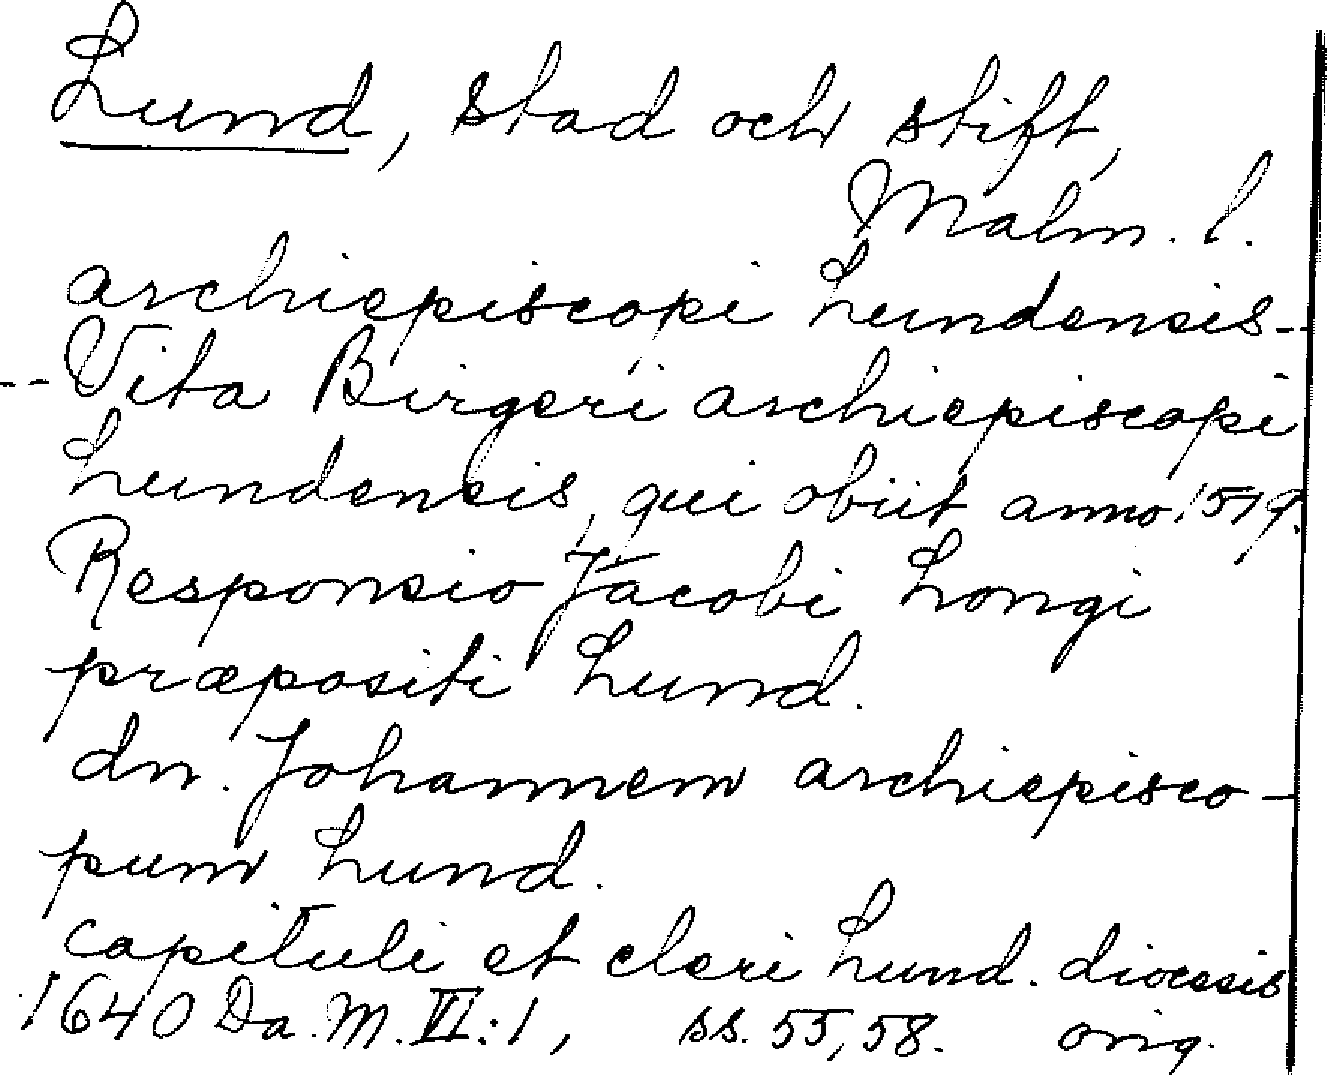 Lund, stad och stift,
Malm. l.
archiepiscopi Lundensis--
-- Vita Birgeri archiepiscopi
Lundensis, qui obiit anno 1519.
Responsio Jacobi Longi
præpositi Lund.
dn. Johannem archiepisco-
pum Lund.
capituli et cleri Lund. diocesis
1640 Da. M. VI:1, ss. 55, 58. orig.